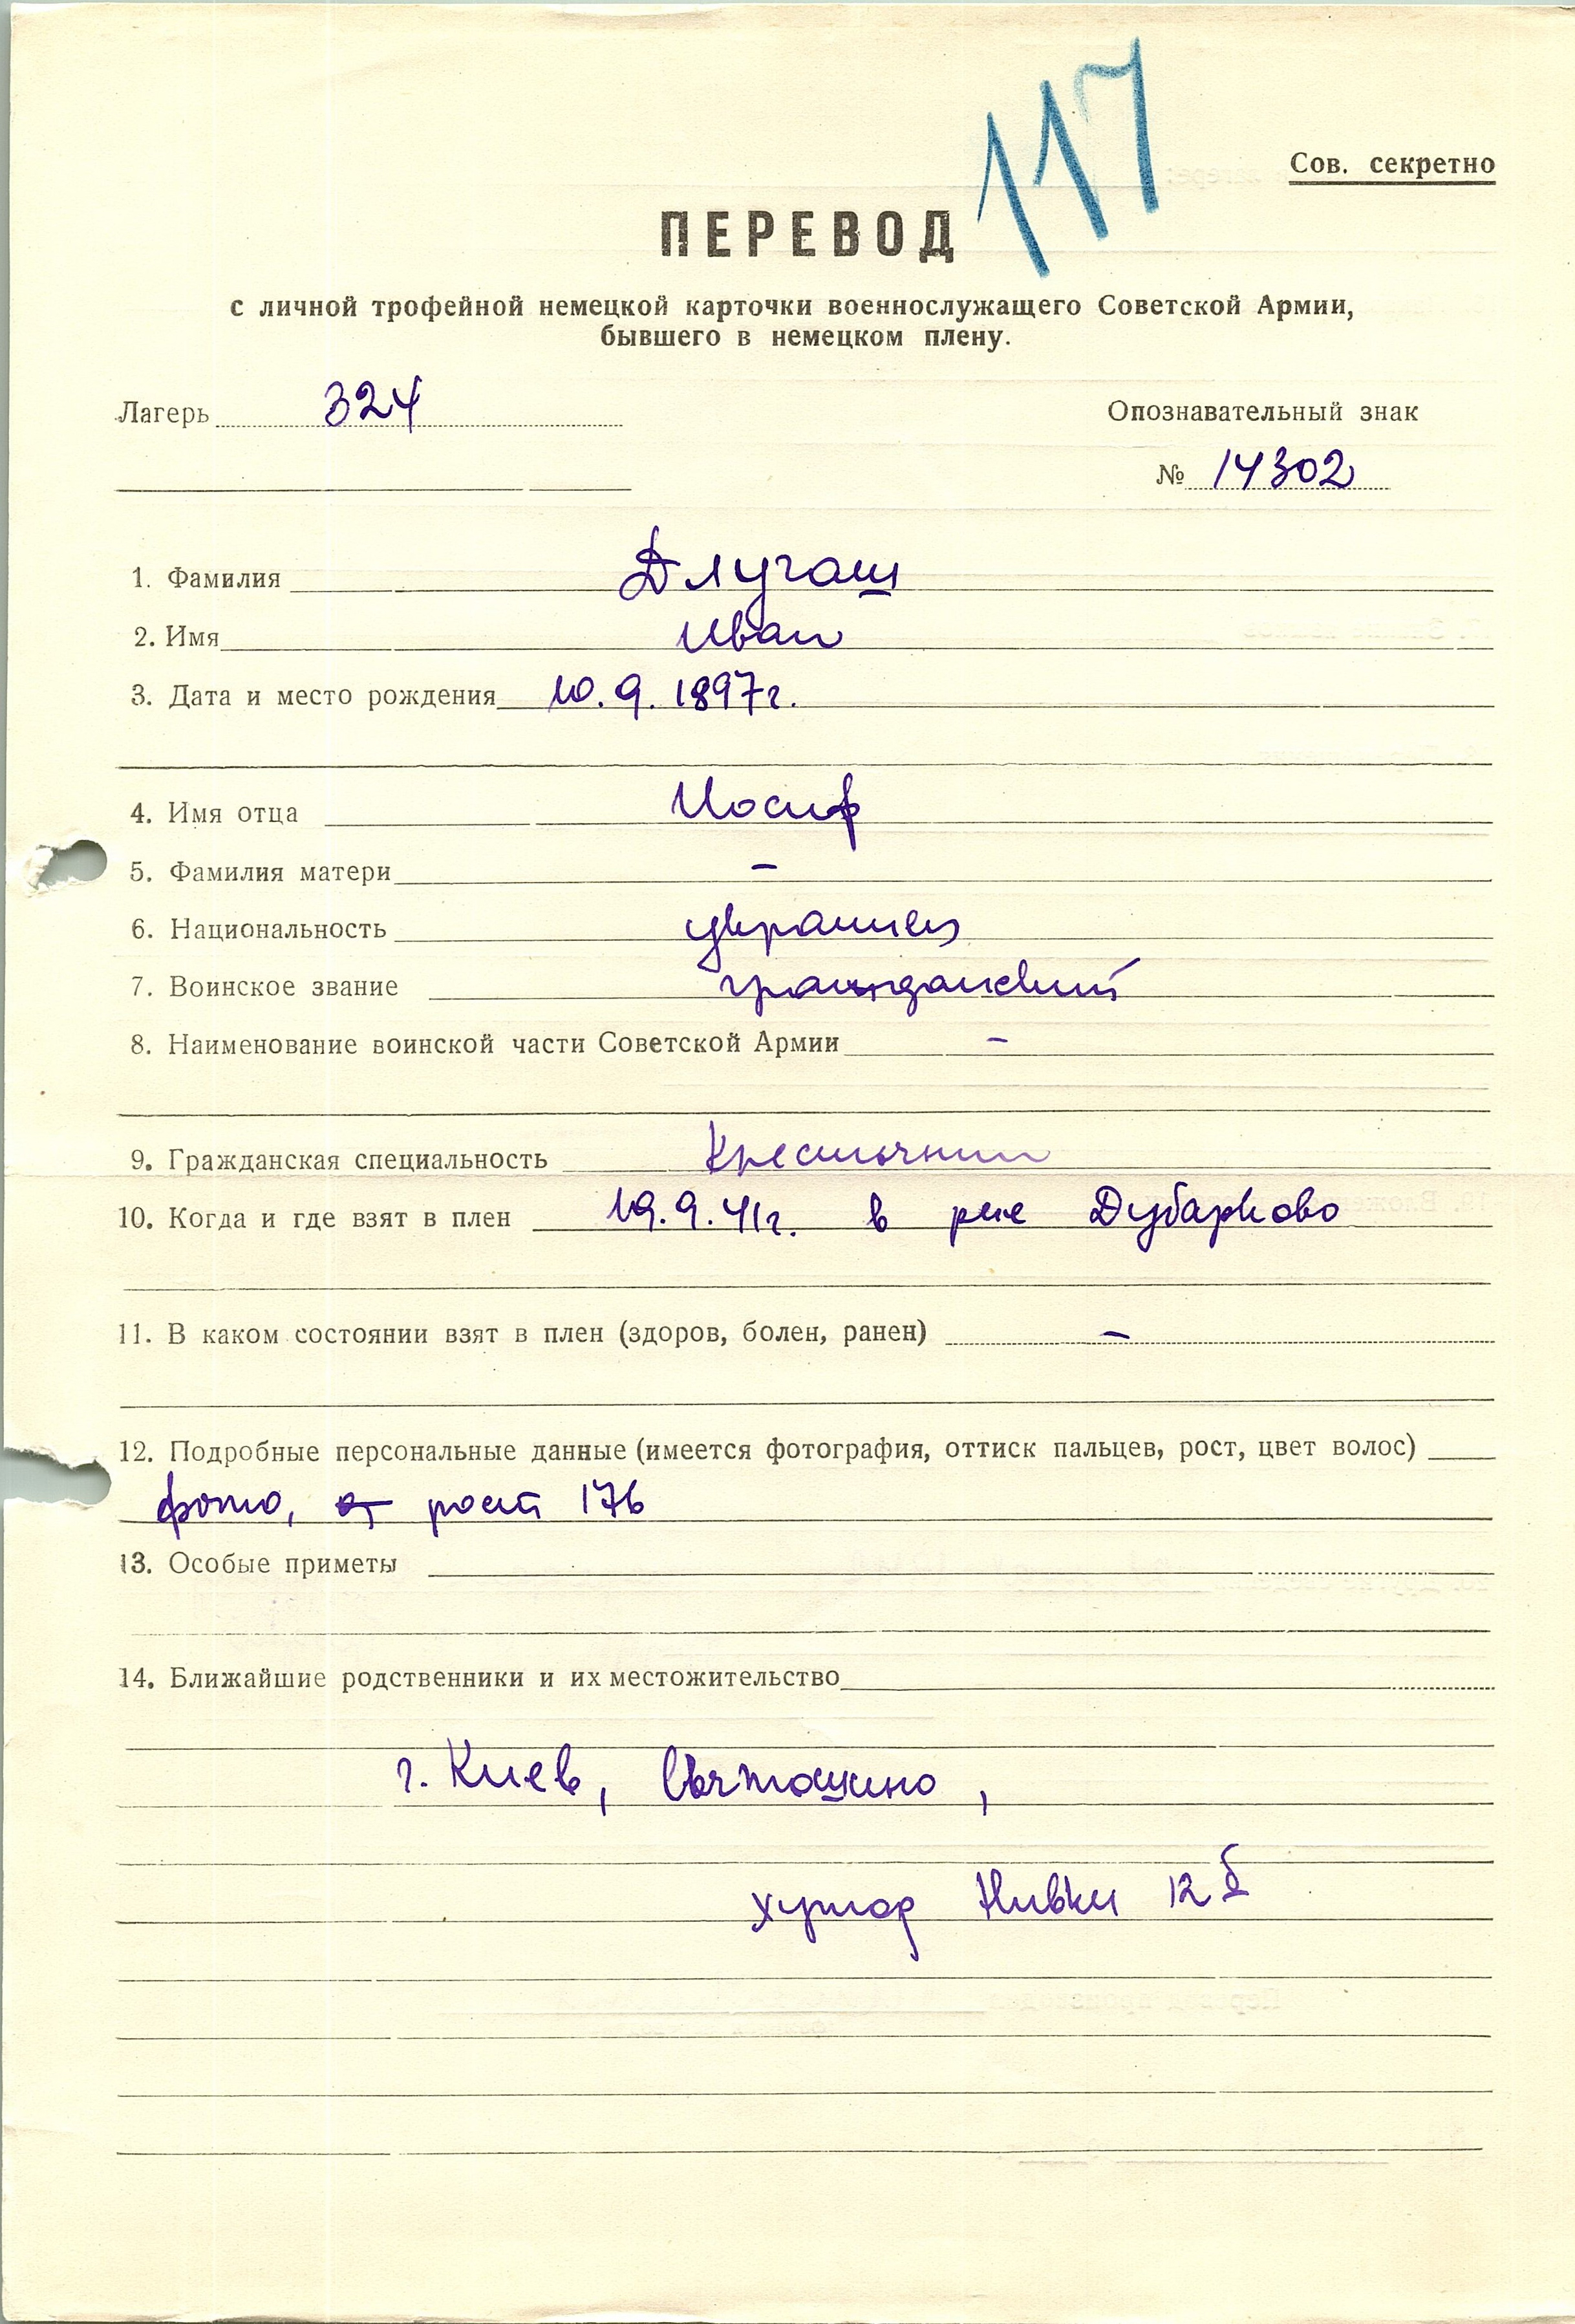 117
Сов. секретно
ПЕРЕВОД
с личной трофейной немецкой карточки военнослужащего Советской Армии,
бывшего в немецком плену.
Лагерь 324
Опознавательный знак
№ 14302
1. Фамилия Длугаш
2. Имя Иван
3. Дата и место рождения 10.9.1897г.
4. Имя отца Иосиф
5. Фамилия матери –
6. Национальность украинец
7. Воинское звание гражданский
8. Наименование воинской части Советской Армии –
9. Гражданская специальность
10. Когда и где взят в плен 19.9.41г. в р-не
11. В каком состоянии взят в плен (здоров, болен, ранен) –
12. Подробные персональные данные (имеется фотография, оттиск пальцев, рост, цвет волос)
фото, рост 176
13. Особые приметы
14. Ближайшие родственники и их местожительство
г. Киев, Святошино,
хутор Нивки 12 б